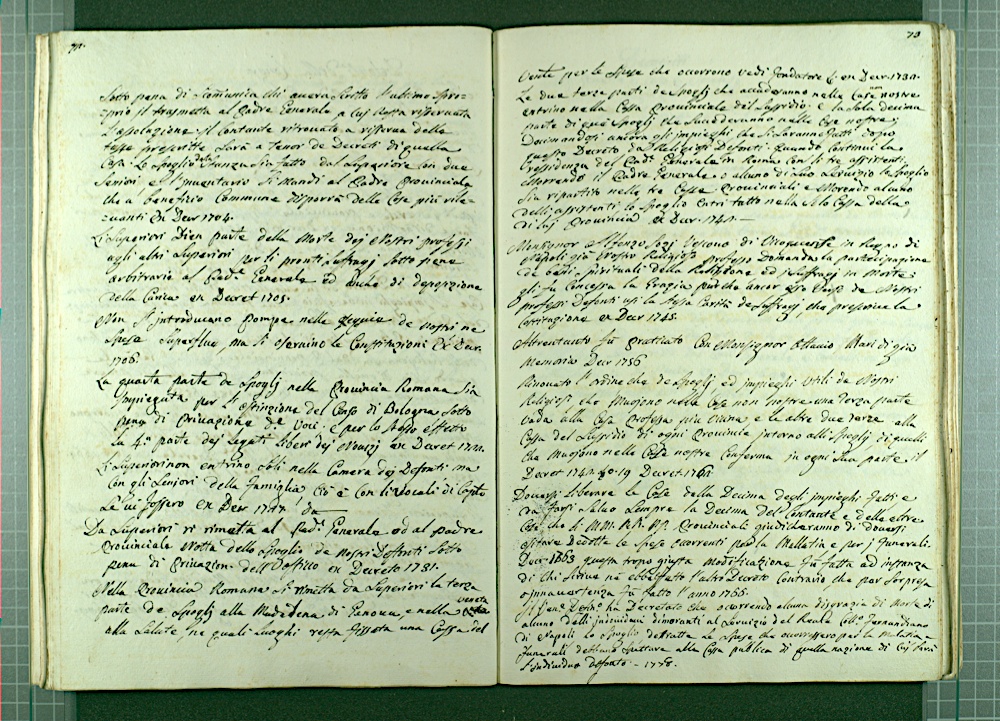 72.
Sotto pena di scomunica chi avera scritto l'ultimo spro-
prio il trasmetta al Padre Generale a cui resta riservata
l'assoluzione. il contante ritrovato a riserva delle
tesse prescritte sarà a tenor de Decreti di quella
Casa. Lo Spoglio della stanza sia fatto dal Superiore con due
Seniori e l'Inventario si mandi al Padre Provinciale
che a beneficio Commune disporrà delle cose più rile-
vanti ex Decr 1704.
Li Superiori Dien parte della Morte dej Nostri professi
agli altri Superiori per li pronti suffragj sotto pena
arbitraria al Pad.e Generale ed anche di deposizione
della Carica ex Decret 1705.
Non s'introducano Pompe nelle esequie de Nostri ne
spese superflue, ma si osservino le Constituzioni Ex Decr.
1706.
La quarta parte de Spoglj nella Provincia Romana sia
impiegata per l'estinzione del Censo di Bologna sotto
pena di Privazione de Voci. E per lo stesso effetto
la 4.a parte dej Legati liberi dej Novizj ex Decret 1711.
Li Superiori non entrino soli nella Camera dej Defonti ma
con gli Seniori della famiglia Cio è con li Vocali di Capito
Le vi fossero ex Decr 1727.
Da Superiori si rimetta al Pad.e Generale od al Padre
Provinciale Nota dello Spoglio de Nostri Defonti sotto
pena di Privazion dell'Offitio ex Decreto 1731.
Nella Provincia Romana si rimetta da Superiori la terza
parte de Spoglj alla Madalena di Genova, e nella veneta
alla Salute, ne quali Luoghi resta fissata una Cassa del
73
vente per le spese che occorrono vedi fondatore ex Decr 1731.
Le due terze parti de Spoglj che accaderanno nelle Case non nostre
entrino nella Cassa Provinciale del Sussidio: e la sola decima
parte di quei Spoglj che succederanno nelle Case nostre;
Decimandosi ancora gli impieghi che si saranno fatti dopo
questo Decreto da Religiosi Defonti. quando Continui la
Pressidenza del Pad.e Generale in Roma con li tre assistenti
Morendo il Padre Generale o alcuno di suo servizio lo Spoglio
sia ripartito nelle tre Casse Provinciali e Morendo alcuno
delli assistenti lo Spoglio entri tutto nella sola Cassa della
di lui Provincia ex Decr 1741.
Monsignor Alfonso Vescovo di in Regno di
Napoli già Nostro Religioso professo Domanda la partecipazione
de beni spirituali della Religione ed suffragj in Morte
gli fu Concessa la Grazia poiche ancor esso Gode de Nostri
professi Defonti usi la stessa Carità de Suffragj che prescrive la
Costituzione ex Decr 1745.
Altrettanto fu praticato con Monsignor Ottavio Mari di già
Memoria Decr 1756
Rinovato l'ordine che de Spoglj ed impieghi Utili de Nostri
Religiosi che Muojono nelle Case non nostre una terza parte
vada alla Casa Professa più vicina e le altre due terze alla
Cassa del Sussidio di ogni Provincia intorno alli Spoglj di quelli
che Muojono nelle Case nostre Conferma in ogni sua parte il
Decret 1741 Decret 1761
Doversi Liberare le Case dalla Decima degli impieghi fatti e
da farsi salvo sempre la Decima del Contante e delle altre
Cose che li M.M. R.R. P.P. Provinciali giudicheranno di doversi
Dedotte le spese occorrenti per la Mallatia e per j Funerali.
Decr 1763 questa troppo giusta Modificazione fu fatta ad instanza
di Chi scrive ne ebbe l'altro Decreto Contrario che per sorpresa
o innavertenza fu fatto l'anno 1766.
Il Ven. Defin.o ha Decretato che occorrendo alcuna disgrazia di Morte di
alcuno delli individui dimoranti al Servizio del Reale Coll.o Fernandiano
di Napoli lo Spoglio detratte le spese che occorressero per la Malatia e
Funerali debbasi spettare alla Cassa publica di quella nazione di Cui sarà
l'individuo defonto. - 1778.